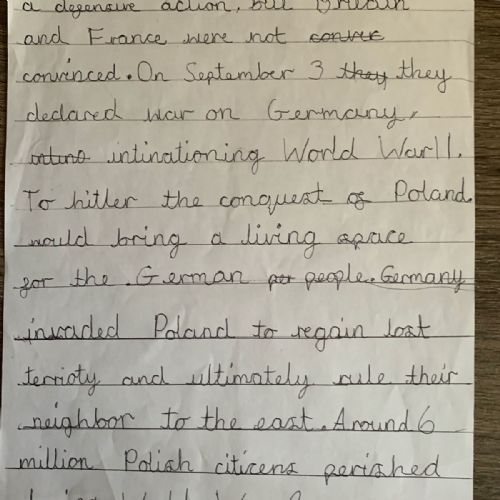 a defensive action, but Britain
and France were not convic
convinced. On September 3 they they
declared war on Germany,
intinationing World War II.
To hitler the conquest of Poland
would bring a living space
for the German per people. Germany
invaded Poland to regain lost
terrioty and ultimately rule their
neighbor to the east. Around 6
million Polish citicens perished